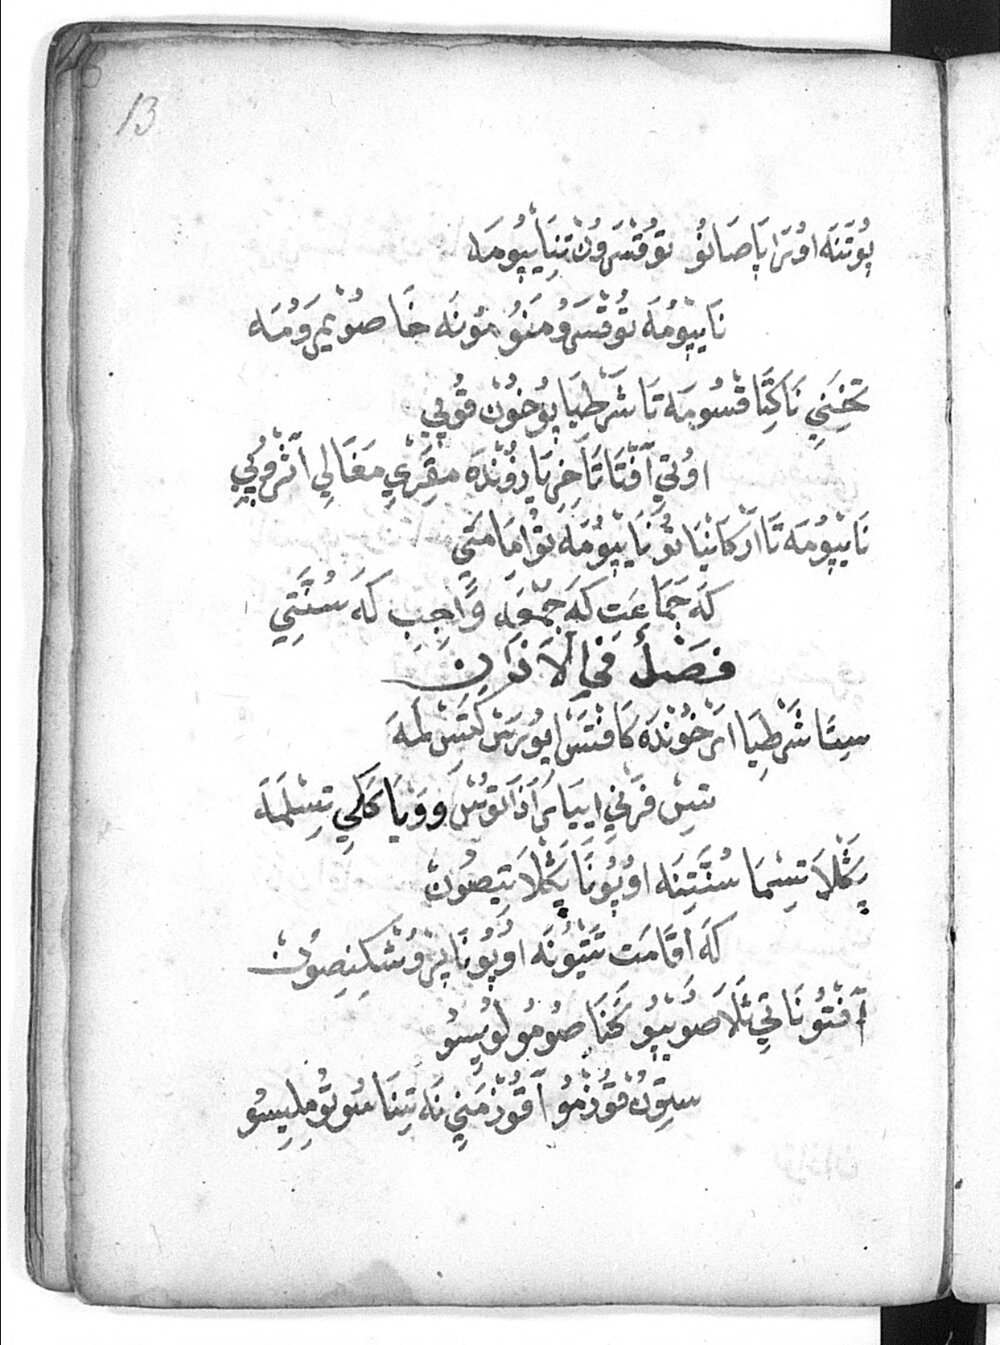 13
پُوتَنَه اوُرَا پَاصَانوُ تَوُقَّسَ وُنْ تِنِنَا يپُومَه
نَايپُومَه تَوُقَّسَ وُمَنوُ مُونَه خَاصُو يمَرَ وُمَه
تَخِنَنِي نَاكِتَّا قْسُومَه تَا شَرْطِيَا پُوخُونْ قُوپِي
اوُنِي آفْتَا تَاآخِرْ يَا رَوُنْدَه مِقِرَعِي مَغَالِي آثْرَوُپِي
نَايپُومَه تَا ارْكَانْيَا نوُ نَايپُومَه تَوُامَامَتِي
كَه جَمَاعِتْ كَه جُمْعَه وَاجِبِ كَه سُنَّتِي
فَصْلُ فِي الْاَذَانِ
سِتَّا شَرْطِيَا امَرْخُونْدَه كَافْتَسْ اپُورَسْ كَتَسْ لَمَه
تِسْ فَرْنِي ايِيَاسْ اَذَانَوُسْ وَوَيَا كَلِي تِسْلَمَه
پَكَّلَا تِسْمَا سُنَّتِنَه اوُپُونَا پَكَّلَا تِيصُونْ
كَه اقَامَتْ تَتِيُونَه اوُپُونَا پَرَوُشْكِنِصُونْ
آفْتُونَا تِي ثَلَا صُويپُو كَّنَا صُومُولُويسُو
سِتِونْ قَوُذْمُو آقَوُذْ مَنِي نَه تِينَاسُو نَوُمِلِيسُو